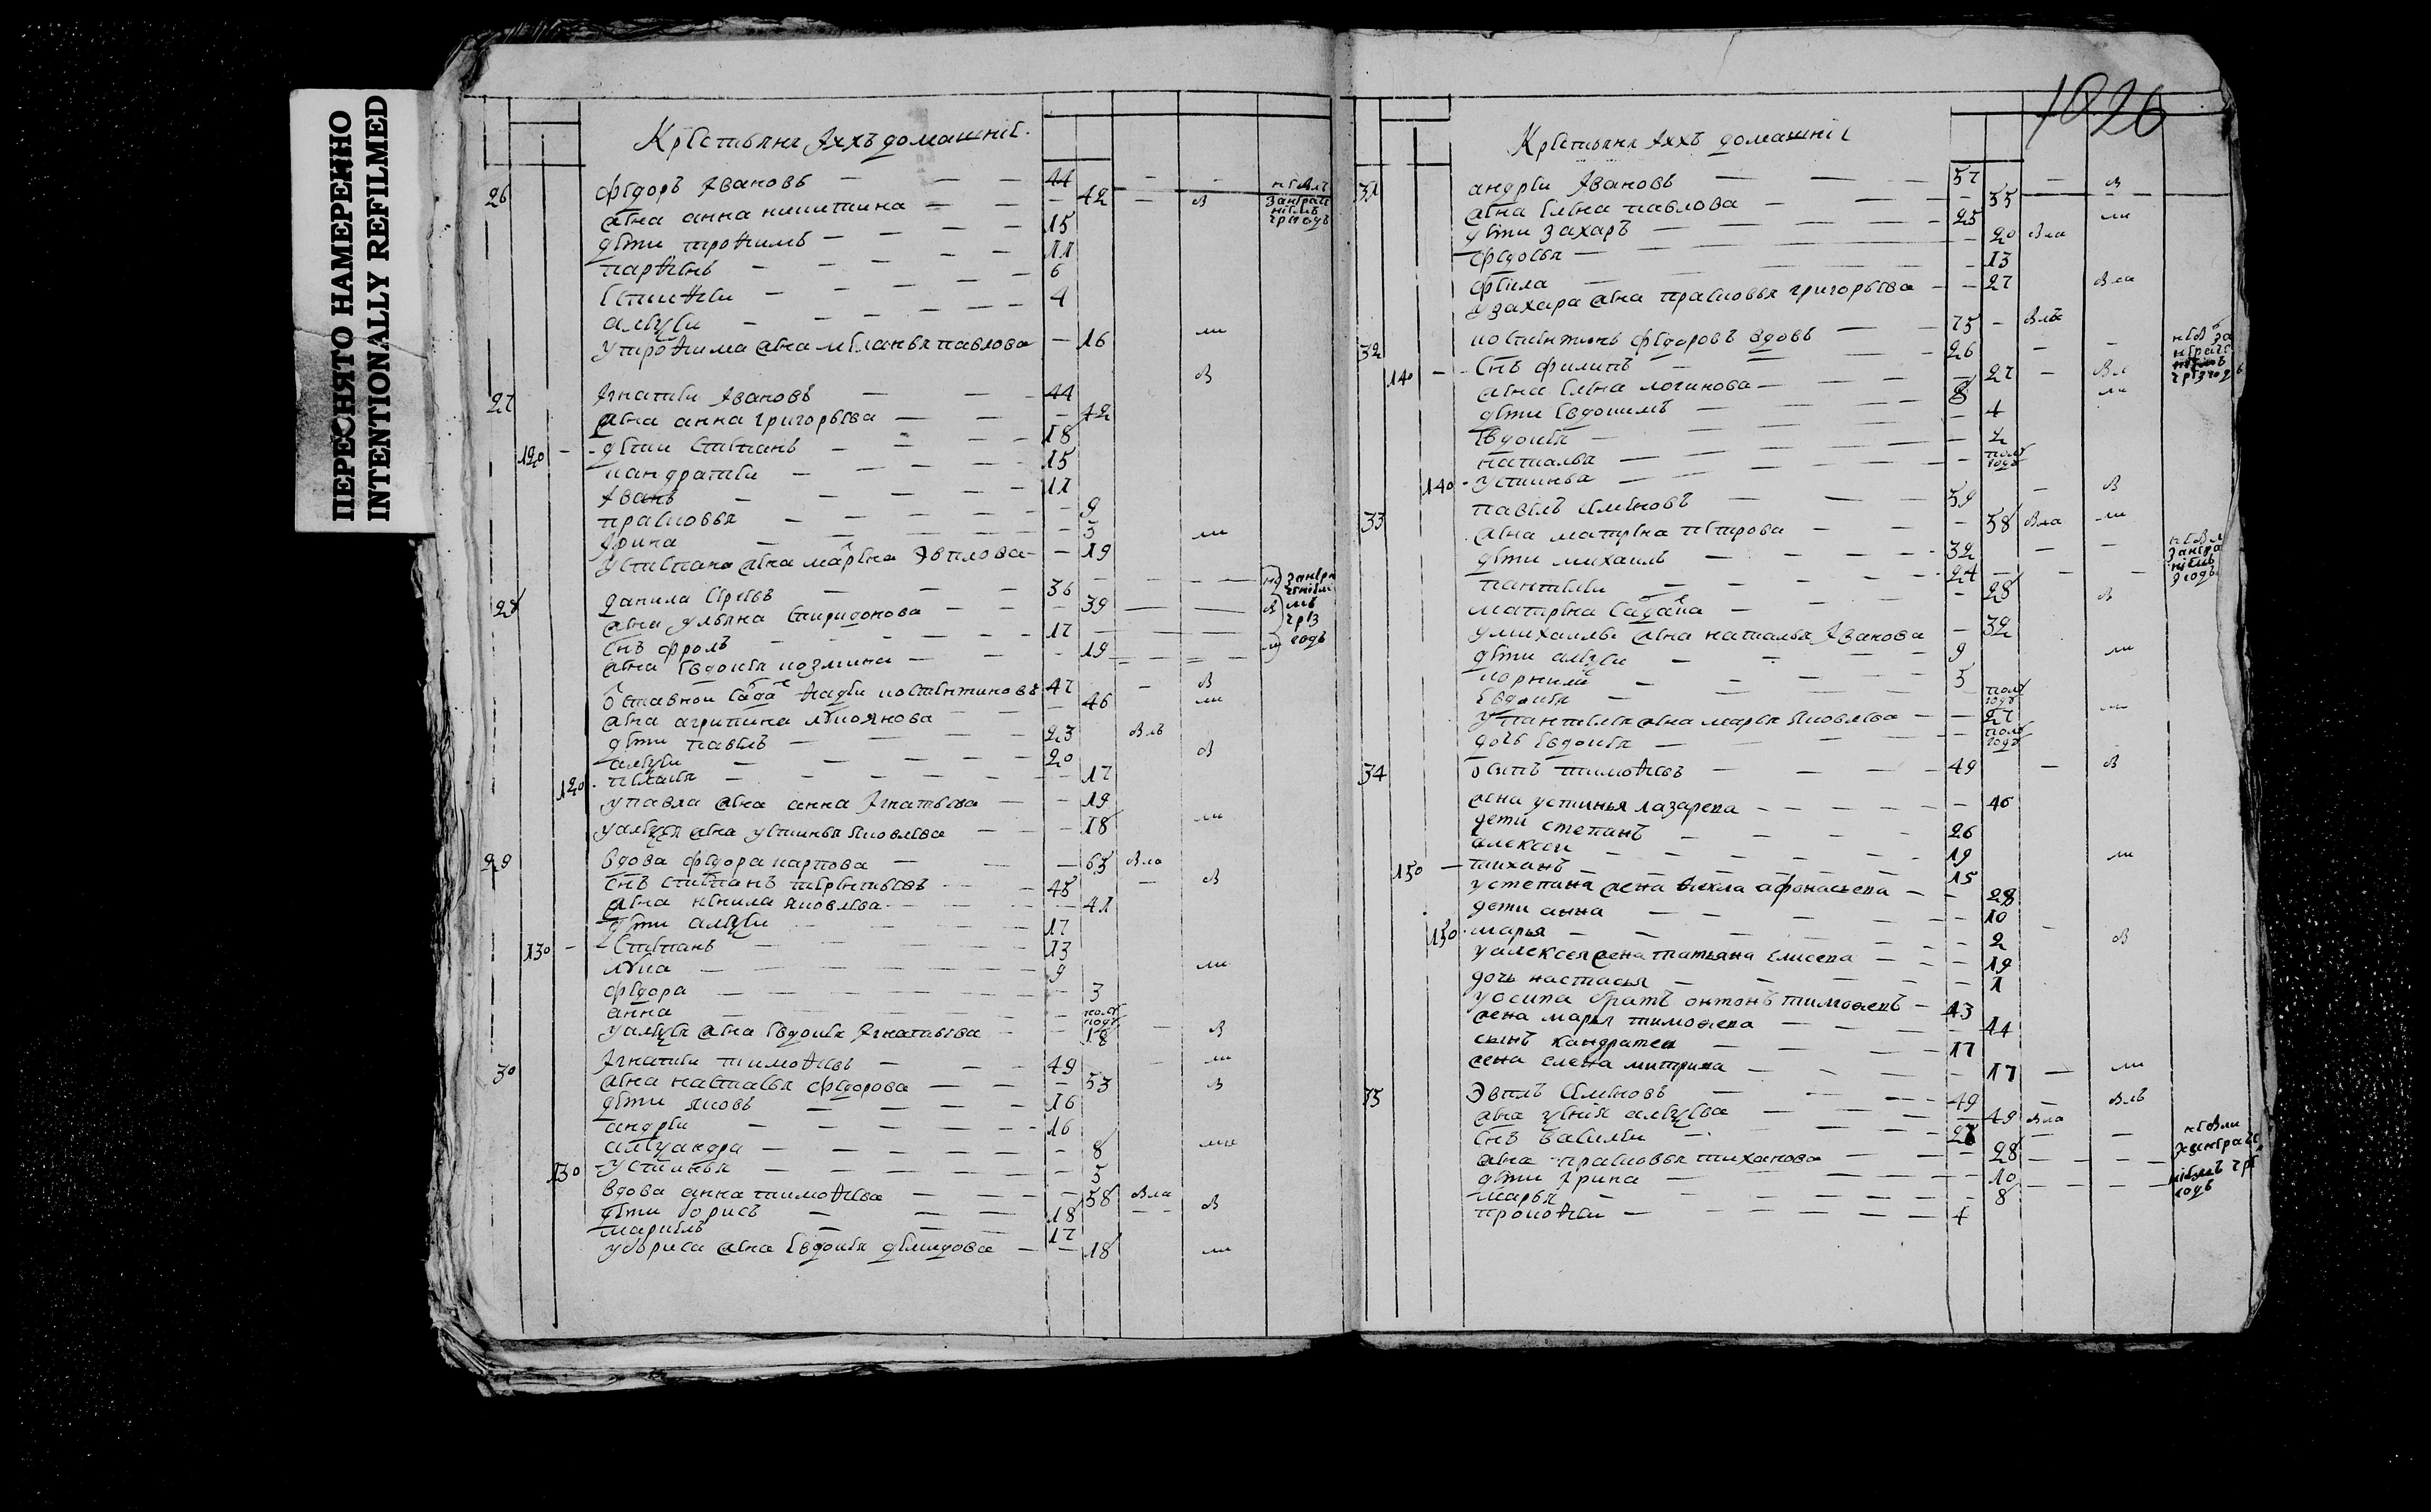 ПЕРЕСНЯТО НАМЕРЕННО
INTENTIONALLY REFILMED
Крестьяня Ихъ домашние
26 федоръ Ивановъ 44
жена анна никитина 42 в
дети трофимъ 15
парфенъ 11
евтифеи 6
алеѯеи 4
у трофима жена меланья павлова 16 ли
27 Игнатеи Ивановъ 44 в
жена анна григорьева 42
120 дети степанъ 18
кандратеи 15
Иванъ 11
прасковья 9
Ирина 3
у степана жена марена Эвплова 19 ли
28 данила 36
жена ульяна спиридонова 39
снъ фролъ 17
жена евдокея козмина 19
отставной фадеи костентиновъ 47 в
жена агрипина лукоянова 46 ли
дети павелъ 23 влъ
алеѯеи 20 в
120 пелагея 17
у павла жена анна Игнатьева 19
у алеѯея жена устинья яковлева 18 ли
29 вдова федора карпова 65 вла
снъ степанъ терентьевъ 45 в
жена ненила яковлева 41
дети алеѯеи 17
130 степанъ 13
лука 9 ли
федора 3
анна полугоду
у алеѯея жена евдокея Игнатьева 18 в
30 Игнатеи тимофеевъ 49 ли
жена настасья федорова 53 в
дети яковъ 16
андреи 16
алеѯандра 8 ли
130 устинья 5
вдова анна тимофеева 58 вла
дети борисъ 18 в
маркелъ 17
у бориса жена евдокея демидова 18 ли
1020
Крестьяня Ихъ домашние
31 андреи Ивановъ 57 в
жена елена павлова 55
дети захаръ 25 ли
федосья 20 вла
фекла 13
у захара жена прасковья григорьева 27 вла
32 костентинъ федоровъ вдовъ 75 влъ
140 снъ филипъ 26
жена елена логинова 27 вл
дети евдокимъ 8 ли
евдокея 4
наталья 2
140 устинья полугоду
33 павелъ семеновъ 59 в
жена матрена петрова 58 вла ли
дети михаилъ 32
пантелеи 24
матрена 28 в
у михаилы жена наталья Иванова 32
дети алеѯеи 9 ли
корнилеи 5
евдокея полугоду
у пантелея жена марья яковлева 27 ли
дочь евдокея полугоду
34 осипъ тимофеевъ 49 в
жена устинья лазарева 46
дети степанъ 26
алексеи 19 ли
150 тиханъ 15
у степана жена фекла афонасьева 28
дети анна 10
150 марья 2 в
у алексея жена татьяна елисева 19
дочь настасья 1
у осипа братъ онтонъ тимофеевъ 43
жена марья тимофеева 44
сынъ кандратеи 17
жена елена митрива 17 ли
35 Эвплъ семеновъ 49 влъ
жена ѯения алеѯева 49 вла
снъ василеи
жена прасковья тиханова 28
дети Ирина 10
марья 8
прокофеи 4